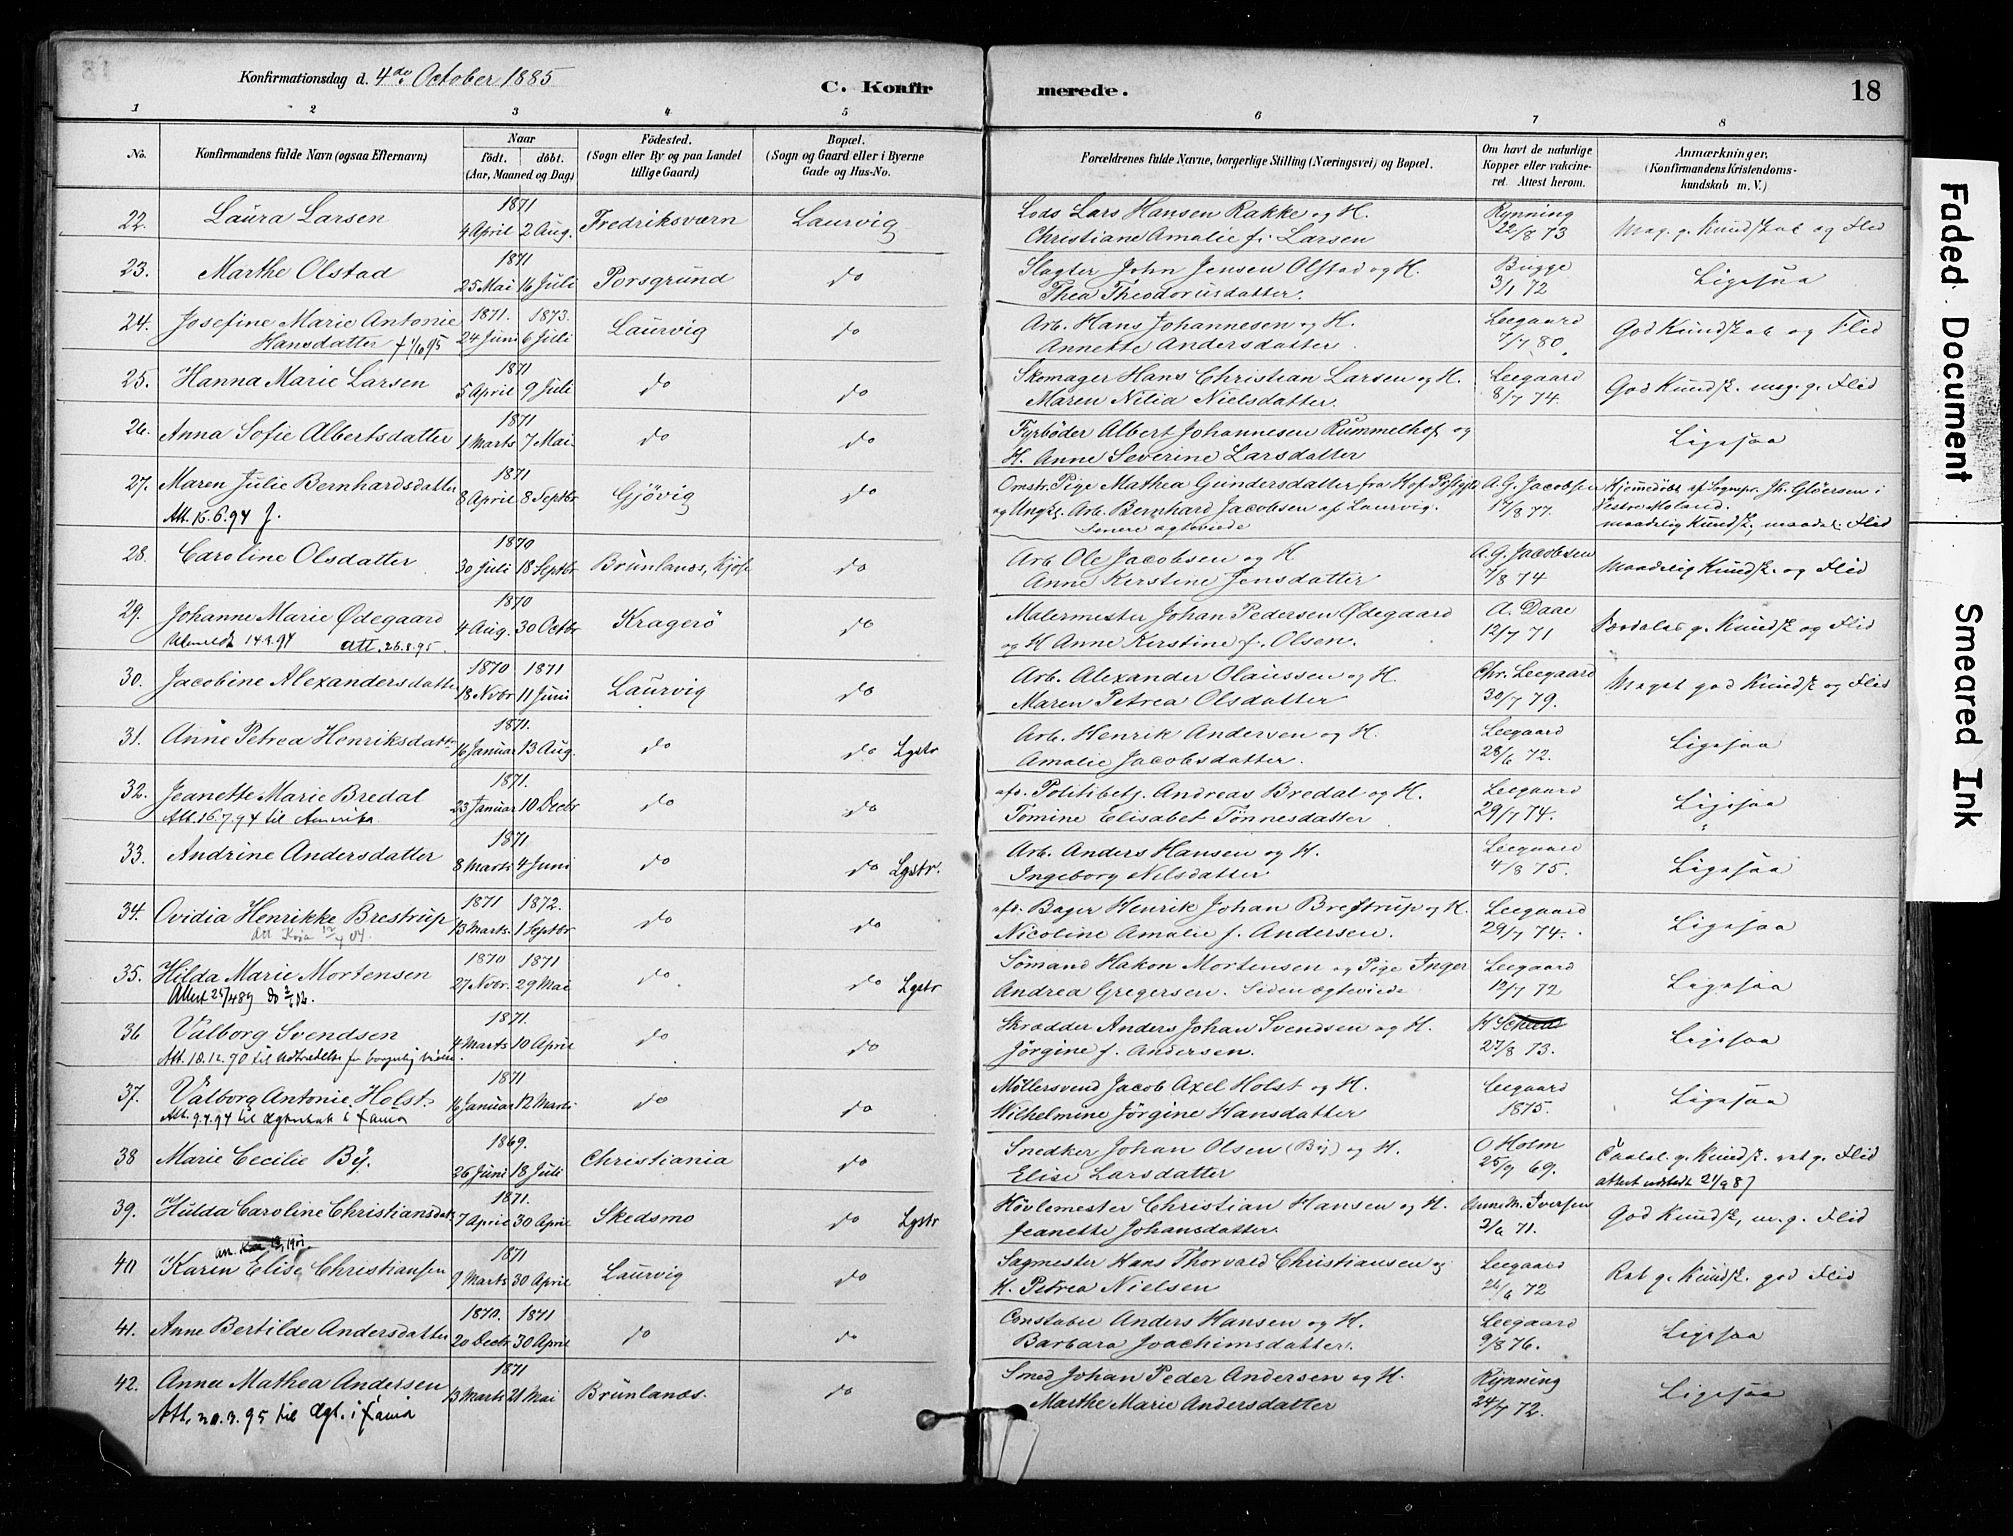 Konfirmationsdag d. 4de October 1885
C. Konfirmerede.
18
1 2 3 4 5 6 7 8
No.
Konfirmandens fulde Navn (ogsaa Efternavn)
Naar
födt. döbt.
(Aar, Maaned og Dag)
Födested.
(Sogn eller By og paa Landet
tillige Gaard)
Bopæl.
(Sogn og Gaard eller i Byerne
Gade og Hus-No.
Forældrenes fulde Navne, borgerlige Stilling (Næringsvei) og Bopæl.
Om havt de naturlige
Kopper eller vakcine-
ret. Attest herom.
Anmærkninger,
(Konfirmandens Kristendoms-
kundskab m. V.)
22. Laura Larsen 1871 4 April 2 Aug. Fredriksværn Laurvig Lods Lars Hansen Rakke og H. Rynning Meg. g. Kundsk. og Flid
Christiane Amalie f. Larsen 22/8 73
23. Marthe Olstad 1871 25 Mai 16 Juli Porsgrund do Slagter John Jensen Olstad og H. Bugge Ligesaa
Thea Theodorusdatter. 3/1 72
24. Josefine Marie Antonie 1871. 1873. 24 Juni 6 Juli Laurvig do Arb. Hans Johannesen og H. Leegaard God Kundskab og Flid
Hansdatter + 1/10 95 Annette Andersdatter 7/7 80
25. Hanna Marie Larsen 1871 5 April 9 Juli do do Skomager Hans Christian Larsen og H. Leegaard God Kundsk. meg. g. Flid
Maren Nilia Nielsdatter. 8/7 74.
26. Anna Sofie Albertsdatter 1871 1 Marts 7 Mai do do Fyrbøder Albert Johannesen Rummelhof og Ligesaa
H. Anne Severine Larsdatter
27. Maren Julie Bernhardsdatter 1871 8 April 8 Septbr Gjövig do Omstr. Pige Mathea Gundersdatter fra Hof A. G. Jacobsen Hjemmedøbt af Sognepr. Jh. Gløersen i
Att. 15.6.94 J. og Ungk. Arb. Bernhard Jacobsen af Laurvig. 17/8 77. Vestre Moland.
Senere ægteviede maadelig Kundsk., maadel. Flid
28. Caroline Olsdatter 1870 30 Juli 18 Septbr Brunlanes, Kjose do Arb Ole Jacobsen og H A. G. Jacobsen Maadelig Kundsk. og Flid
Anne Kerstine Jensdatter 7/8 74
29. Johanne Marie Ødegaard 1870 4 Aug. 30 Octbr Kragerö do Malermester Johan Pedersen Ødegaard A. Daae g. Kundsk og Flid
14.9.94 att. 26.8.95. og H Anne Kerstine f. Olsen. 12/7 71
30. Jacobine Alexandersdatter 1870 1871 18 Nvbr 11 Juni Laurvig do Arb. Alexander Olaussen og H. Chr. Leegaard Meget god Kundsk og Flid
Maren Petrea Olsdatter 30/7 79.
31. Anne Petrea Henriksdattr 1871. 16 Januar 13 Aug. do do Lgstr Arb. Henrik Andersen og H. Leegaard Ligesaa
Amalie Jacobsdatter. 28/6 72.
32. Jeanette Marie Bredal 1871. 23 Januar 10 Decbr do do afd. Politibetj. Andreas Bredal og H. Leegaard Ligesaa
Att. 16.7.94 til Amerika. Tomine Elisabet Tönnesdatter 29/7 74.
33. Andrine Andersdatter 1871 8 Marts 4 Juni do do Lgstr. Arb. Anders Hansen og H. Leegaard Ligesaa
Ingeborg Nilsdatter 4/8 75.
34. Ovidia Henrikke Brestrup 1871 1872. 13 Marts 1 Septbr do do afd. Bager Henrik Johan Brestrup og H. Leegaard Ligesaa
Nicoline Amalie f. Andersen. 29/7 74.
35. Hilda Marie Mortensen 1870 1871 27 Novbr. 29 Mai do do Lgstr Sömand Hakon Mortensen og Pige Inger Leegaard Ligesaa
Attest 25/4 89 Andrea Gregersen. Siden ægteviede 12/7 72
36 Valborg Svendsen 1871. 4 Marts 10 April do do Skrædder Anders Johan Svendsen og H. Ligesaa
Att. 18.12.90 til Udtrædelse for borgerlig Jörgine f. Andersen. 27/8 73.
37. Valborg Antonie Holst. 1871 16 Januar 12 Marts do do Møllersvend Jacob Axel Holst og H. Leegaard Ligesaa
Att. 9.4.94 til Ægteskab i Tanum Wilhelmine Jörgine Hansdatter 1875.
38 Marie Cecilie By. 1869. 26 Juni 18 Juli Christiania do Snedker Johan Olsen (By) og H. O Holm g. Kundsk. g. Flid
Elise Larsdatter 25/9 69. attest udstedt
39. Hulda Caroline Christiansdatr 1871. 7 April 30 April Skedsmo do Lgstr Høvlemester Christian Hansen og H. Anne M. Iversen God Kundsk, m. g. Flid
Jeanette Johansdatter. 2/6 71.
40 Karen Elise Christiansen 1871 9 Marts 30 April Laurvig do Sagmester Hans Thorvald Christiansen og Leegaard g. Kundsk. god Flid
H. Petrea Nielsen 26/6 72
41. Anne Bertilde Andersdatter 1870. 1871 20 Decbr 30 April do do Constabel Anders Hansen og H. Leegaard Ligesaa
Barbara Joachimsdatter. 9/8 76.
42. Anna Mathea Andersen 1871 13 Marts 21 Mai Brunlanes. do Smed Johan Peder Andersen og H. Rynning Ligesaa
Att. 20.3.95 til Ægt. i Tanum Marthe Marie Andersdatter 24/7 72.
Faded Document
Smeared Ink